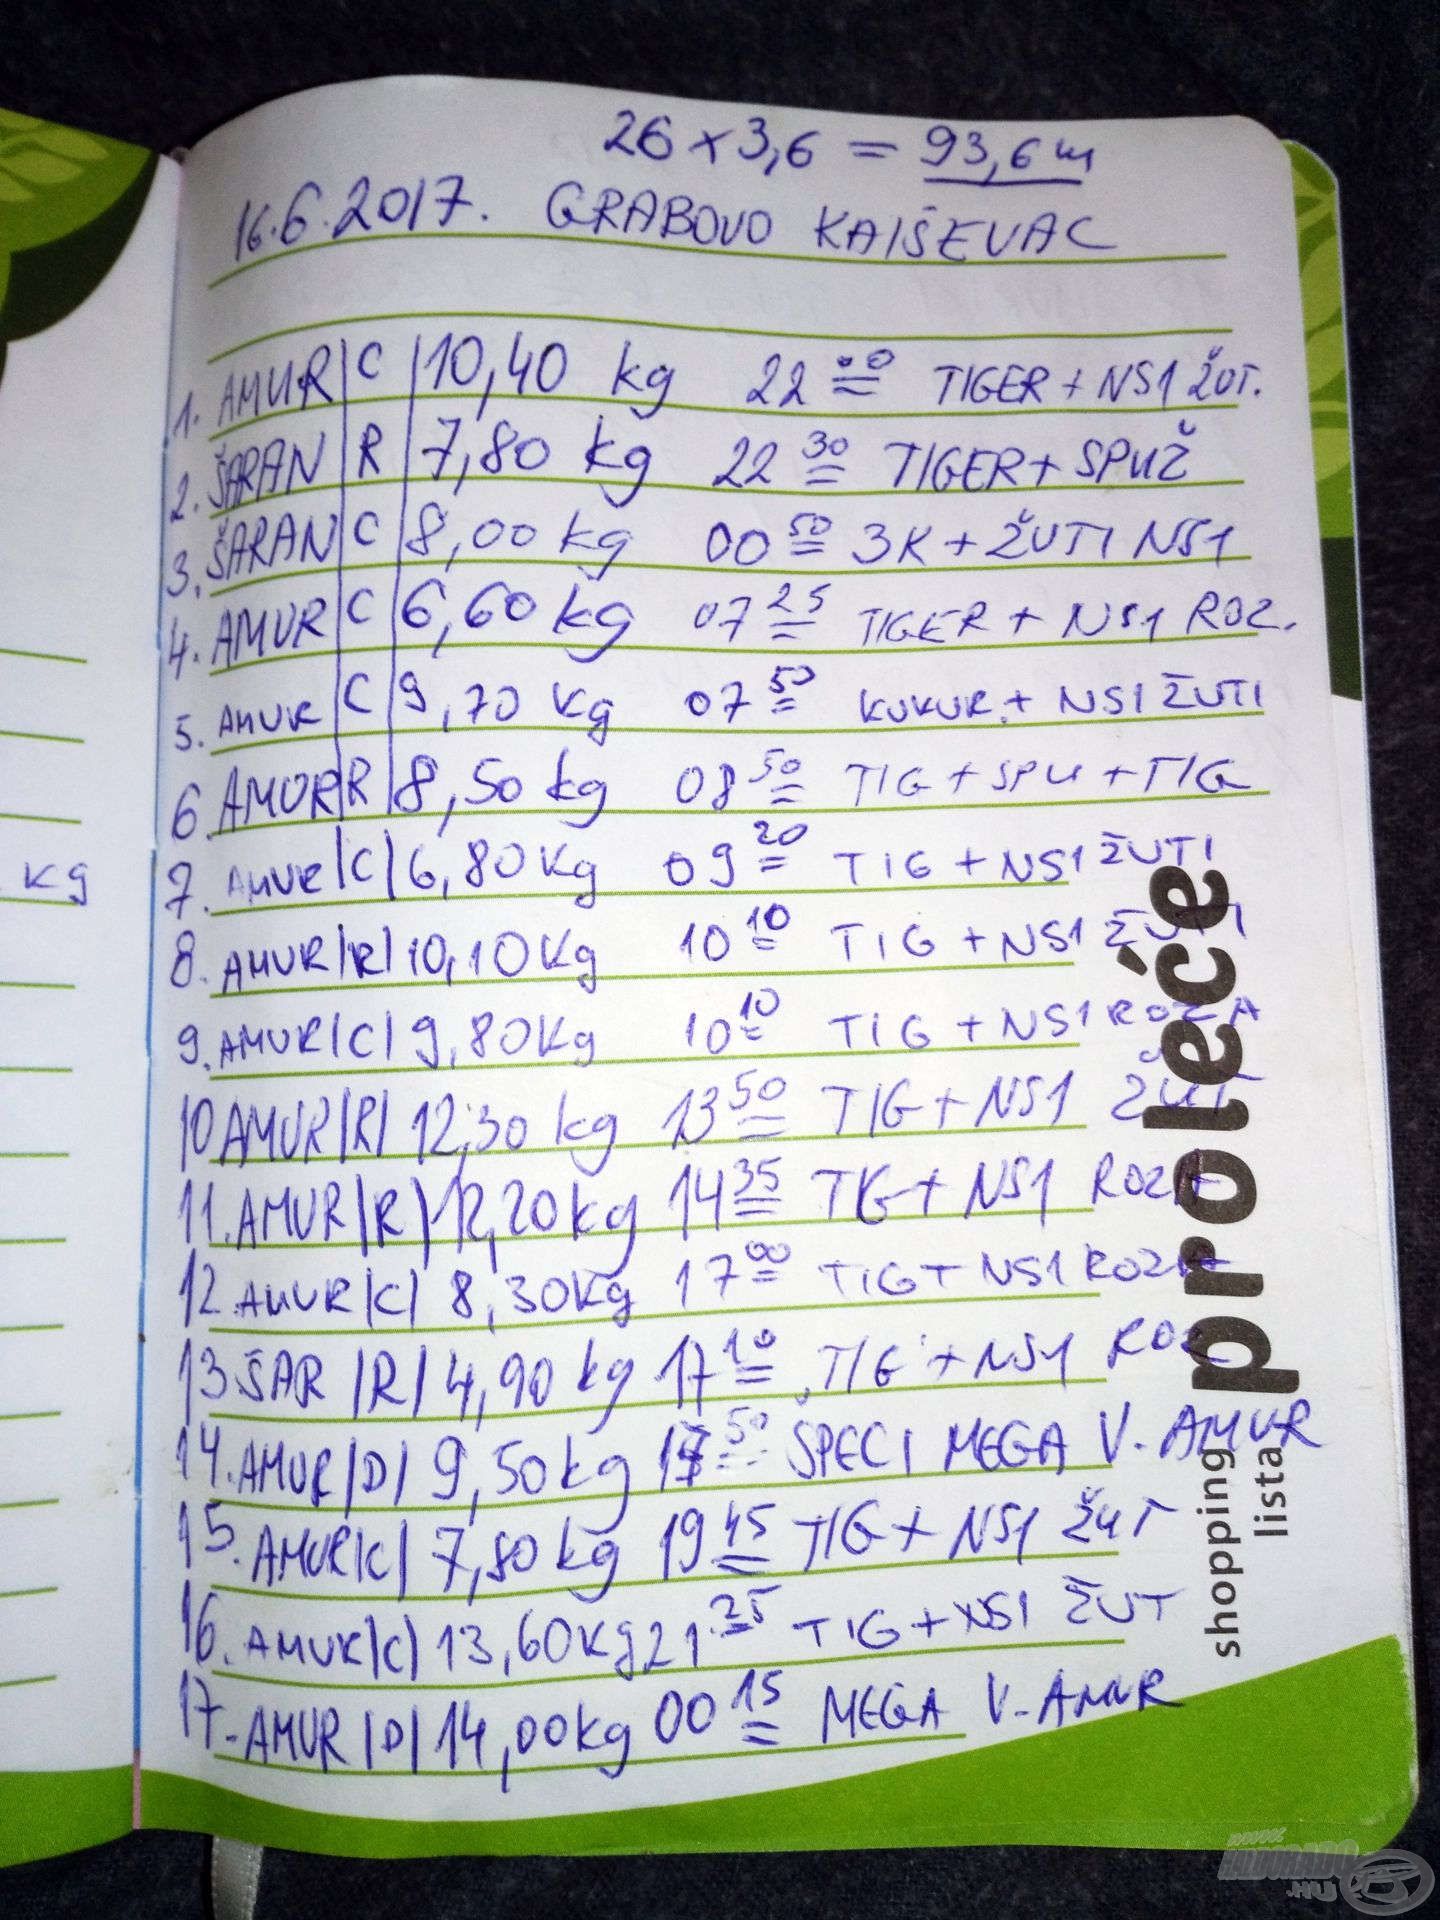 26 x 3,6 = 93,6 m
16.6.2017. GRABOVO KAIŠEVAC
1. AMUR | C | 10,40 kg 22 00 TIGER + NS1 ŽUT.
2. ŠARAN | R | 7,80 kg 22 30 TIGER + SPUŽ
3. ŠARAN | C | 8,00 kg 00 50 3K + ŽUTI NS1
4. AMUR | C | 6,60 kg 07 25 TIGER + NS1 ROZ.
5. AMUR | C | 9,70 kg 07 50 KUKUR. + NS1 ŽUTI
6. AMUR | R | 8,50 kg 08 50 TIG + SPU + TIG
7. AMUR | C | 6,80 kg 09 20 TIG + NS1 ŽUTI
8. AMUR | R | 10,10 kg 10 10 TIG + NS1 ŽUTI
9. AMUR | C | 9,80 kg 10 10 TIG + NS1 ROZA
10 AMUR | R | 12,30 kg 13 50 TIG + NS1 ŽUT
11. AMUR | R | 12,20 kg 14 35 TIG + NS1 ROZA
12. AMUR | C | 8,30 kg 17 00 TIG + NS1 ROZA
13 ŠAR | R | 4,90 kg 17 10 TIG + NS1 ROZ
14. AMUR | D | 9,50 kg 50 ŠPECI MEGA V. AMUR
15. AMUR | C | 7,80 kg 19 45 TIG + NS1 ŽUT
16. AMUR | C | 13,60 kg 21 25 TIG + NS1 ŽUT
17. AMUR | D | 14,00 kg 00 15 MEGA V. AMUR
kg
proleće
shopping
lista
www.
HALDORADO
.HU